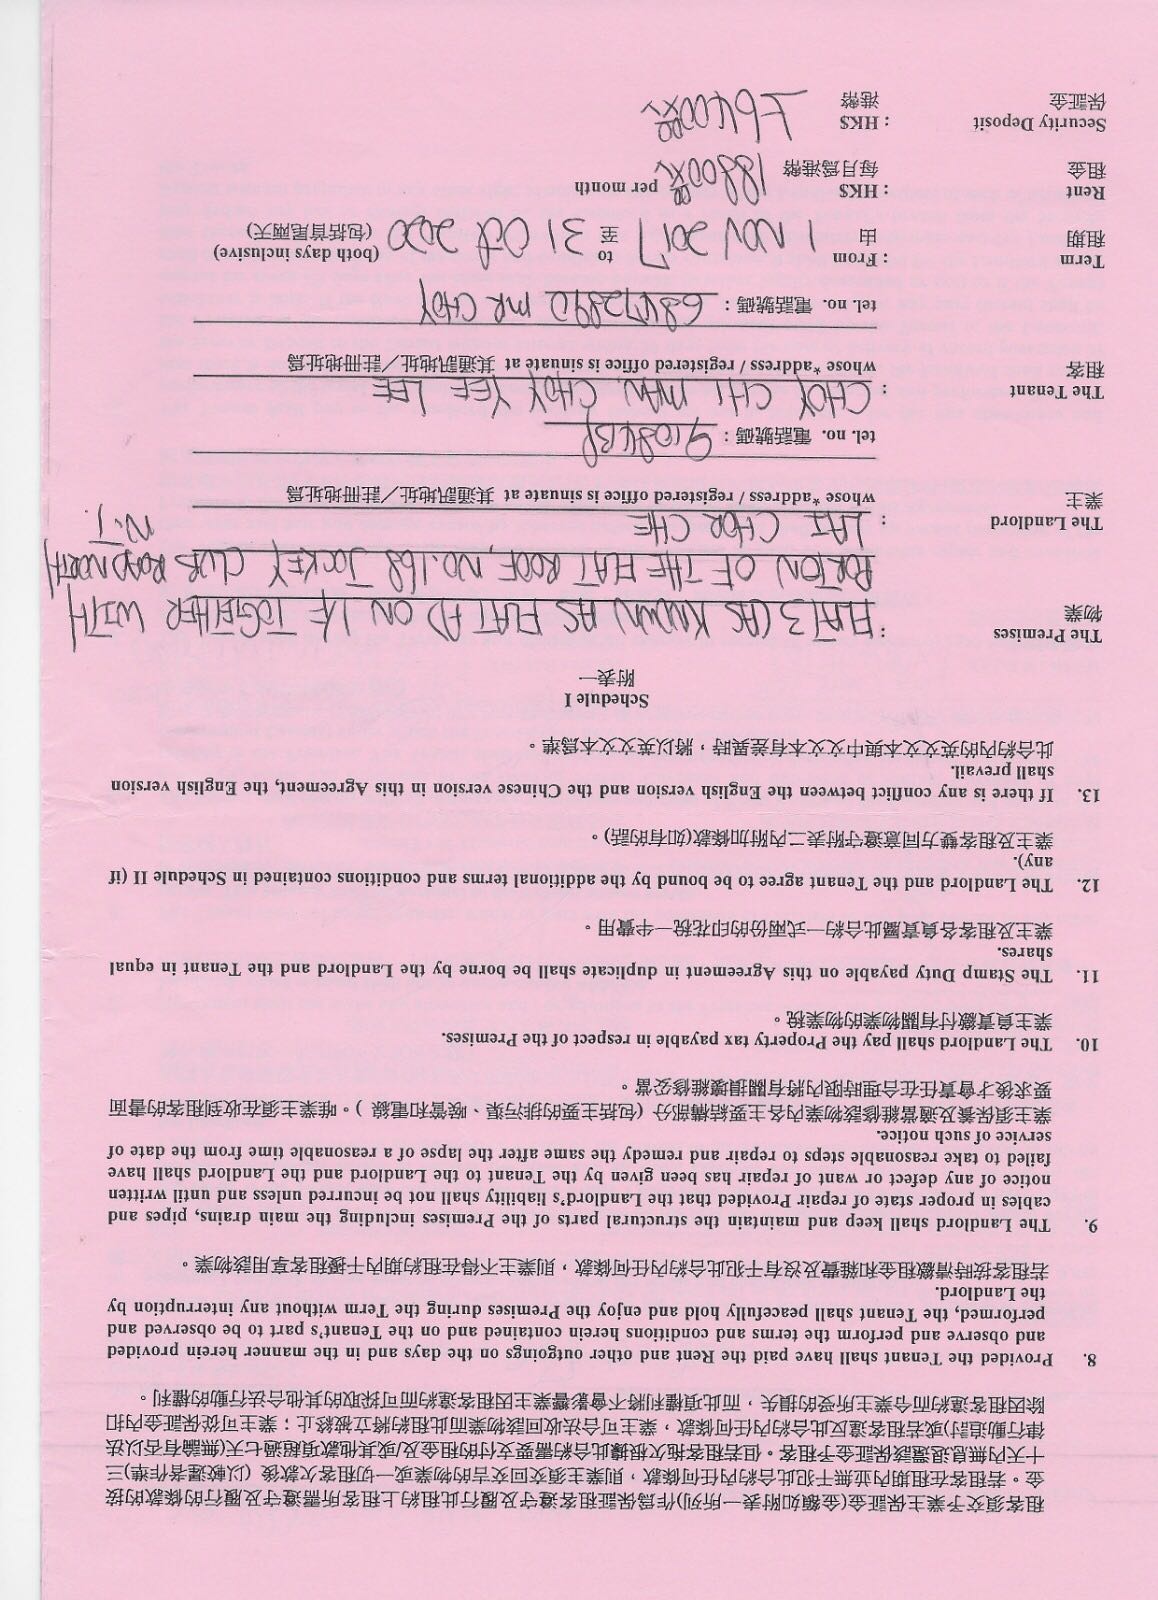 租客須交予業主保証金(金額如附表一所列)作爲保証租客遵守及履行此租約上租客所需遵守及履行的條款的按
金。若租客在租期內並無干犯此合約內任何條款,則業主須交回交吉的物業或一切租客欠款後 (以較遲者作準)三
十天內無息退還該保証金予租客。但若租客拖欠根據此合約需要支付的租金及/或其他款項超過七天(無論有否以法
律行動追討)或若租客違反此合約內任何條款,業主可合法收回該物業而此租約將立被終止;業主可從保証金內扣
除因租客違約而令業主所受的損失,而此項權利將不會影響業主因租客違約而可採取的其他合法行動的權利。
8. Provided the Tenant shall have paid the Rent and other outgoings on the days and in the manner herein provided
and observe and perform the terms and conditions herein contained and on the Tenant's part to be observed and
performed, the Tenant shall peacefully hold and enjoy the Premises during the Term without any interruption by
the Landlord.
若租客按時清繳租金和雜費及沒有干犯此合約內任何條款,則業主不得在租約期內干擾租客享用該物業。
9. The Landlord shall keep and maintain the structural parts of the Premises including the main drains, pipes and
cables in proper state of repair Provided that the Landlord's liability shall not be incurred unless and until written
notice of any defect or want of repair has been given by the Tenant to the Landlord and the Landlord shall have
failed to take reasonable steps to repair and remedy the same after the lapse of a reasonable time from the date of
service of such notice.
業主須保養及適當維修該物業內各主要結構部分 (包括主要的排污渠、喉管和電線 )。唯業主須在收到租客的書面
要求後才會責任在合理時限內將有關損壞維修妥當。
10. The Landlord shall pay the Property tax payable in respect of the Premises.
業主負責繳付有關物業的物業稅。
11. The Stamp Duty payable on this Agreement in duplicate shall be borne by the Landlord and the Tenant in equal
shares.
業主及租客各負責屬此合約一式兩份的印花稅一半費用。
12. The Landlord and the Tenant agree to be bound by the additional terms and conditions contained in Schedule II (if
any).
業主及租客雙方同意遵守附表二內附加條款(如有的話)。
13. If there is any conflict between the English version and the Chinese version in this Agreement, the English version
shall prevail.
此合約內的英文文本與中文文本有差異時,將以英文文本爲準。
Schedule I
附表一
The Premises : FLAT 3 (AS KNOWN AS FLAT A) ON 1/F TOGETHER WITH
物業
PORTION OF THE FLAT ROOF, NO.168 JOCKEY CLUB ROAD NORTH
N.T.
The Landlord : LAI CHOR CHE
業主 whose *address / registered office is sinuate at 其通訊地址/註冊地址爲
tel. no. 電話號碼 :
The Tenant : CHOY CHI MAN, CHOY YEE LEE
租客 whose *address / registered office is sinuate at 其通訊地址/註冊地址爲
tel. no. 電話號碼 : 68472890 MR CHOY
Term : From 1 NOV 2017 to 31 Oct 2020 (both days inclusive)
租期 由 至 (包括首尾兩天)
Rent : HK$ 18800 per month
租金 每月爲港幣
Security Deposit : HK$
保証金 港幣